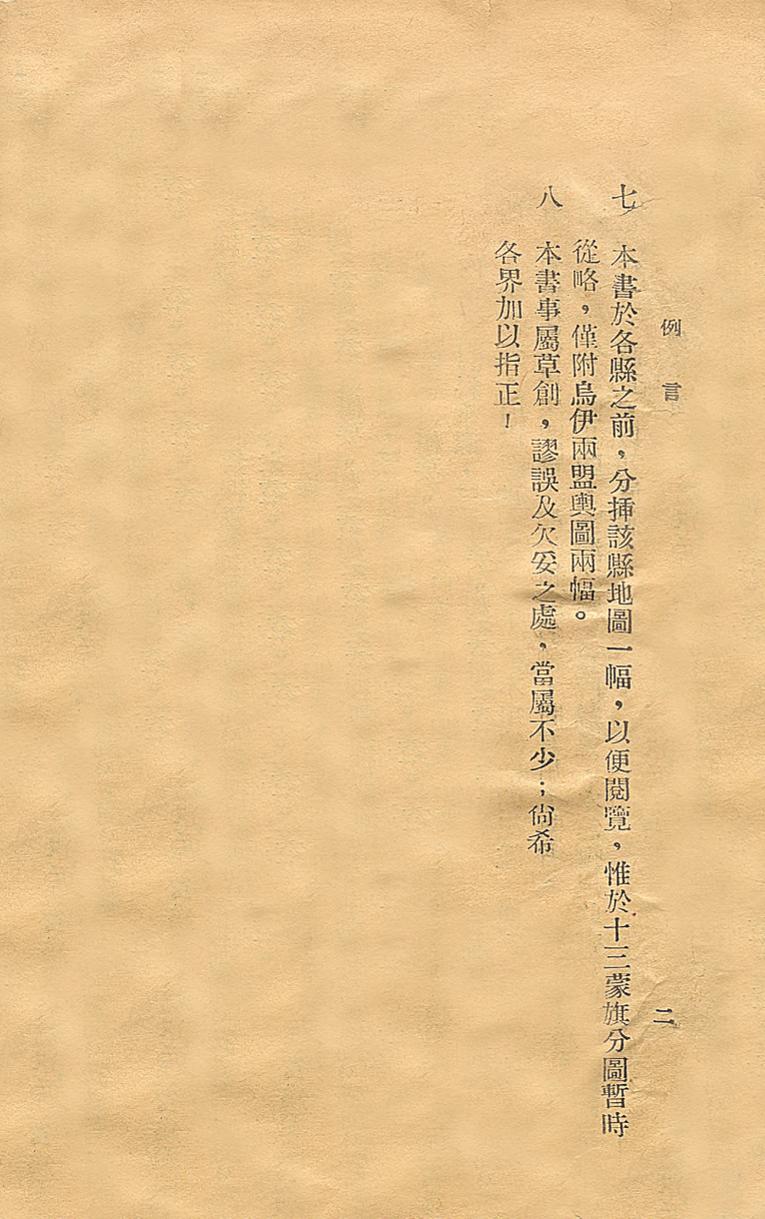 例言
二
七 本書於各縣之前，分揷該縣地圖一幅，以便閱覽，惟於十三蒙旗分圖暫時
從略，僅附烏伊兩盟輿圖兩幅。
八 本書事屬草創，謬誤及欠妥之處，當屬不少；尙希
各界加以指正！